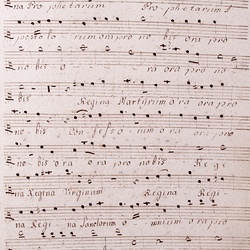 na Pro phetarum Pro phetarum
postolo rum ora pro no bis ora
bis o ra ora pro no
bis Regina Martyrum ora ora pro
no bis Con fesso rum o ra ora pro
no bis o ra ora pro nobis Re gi
na Regina Virginum Regina Regi
na Regi na Sanctorum o mnium ora pro